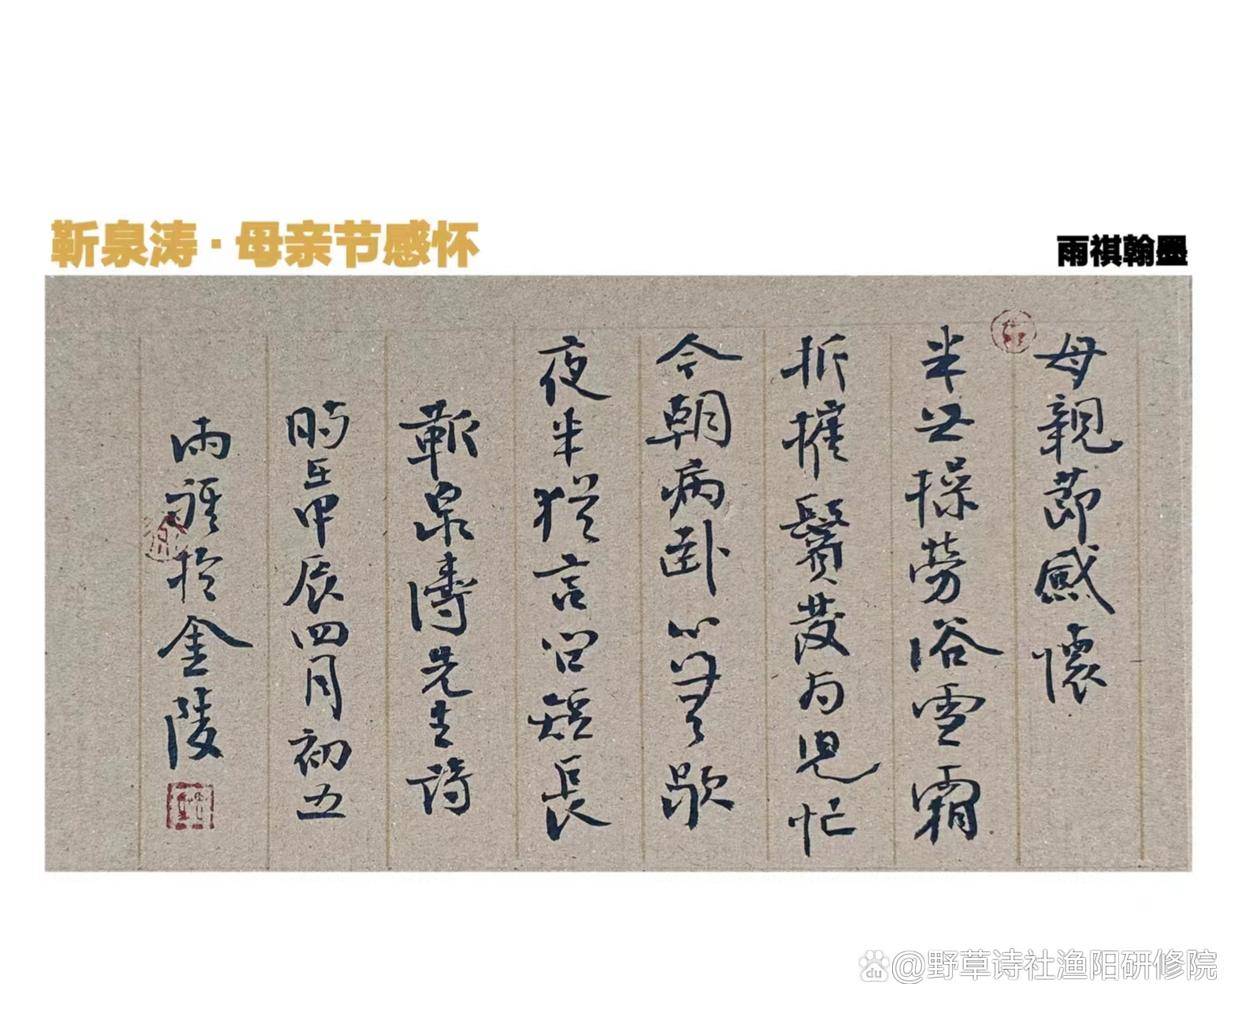 靳泉涛·母亲节感怀
雨祺翰墨
母親節感懷
半世操勞浴雪霜
折摧鬢發为兒忙
今朝病卧心無歇
夜半猶言问短長
靳泉濤先生詩
時在甲辰四月初五
雨祺於金陵
@野草诗社渔阳研修院